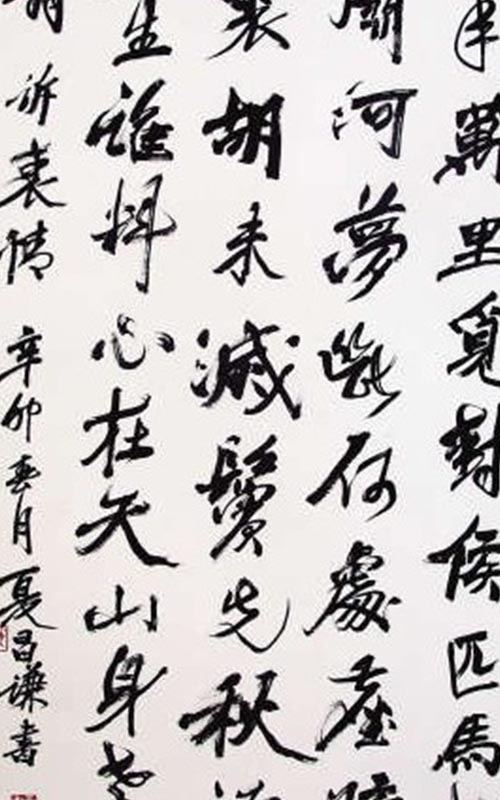 年萬里覓封侯匹馬
關河夢斷何處塵
裘胡未滅鬢先秋
生誰料心在天山身老
訴衷情 辛卯春月 夏昌謙書